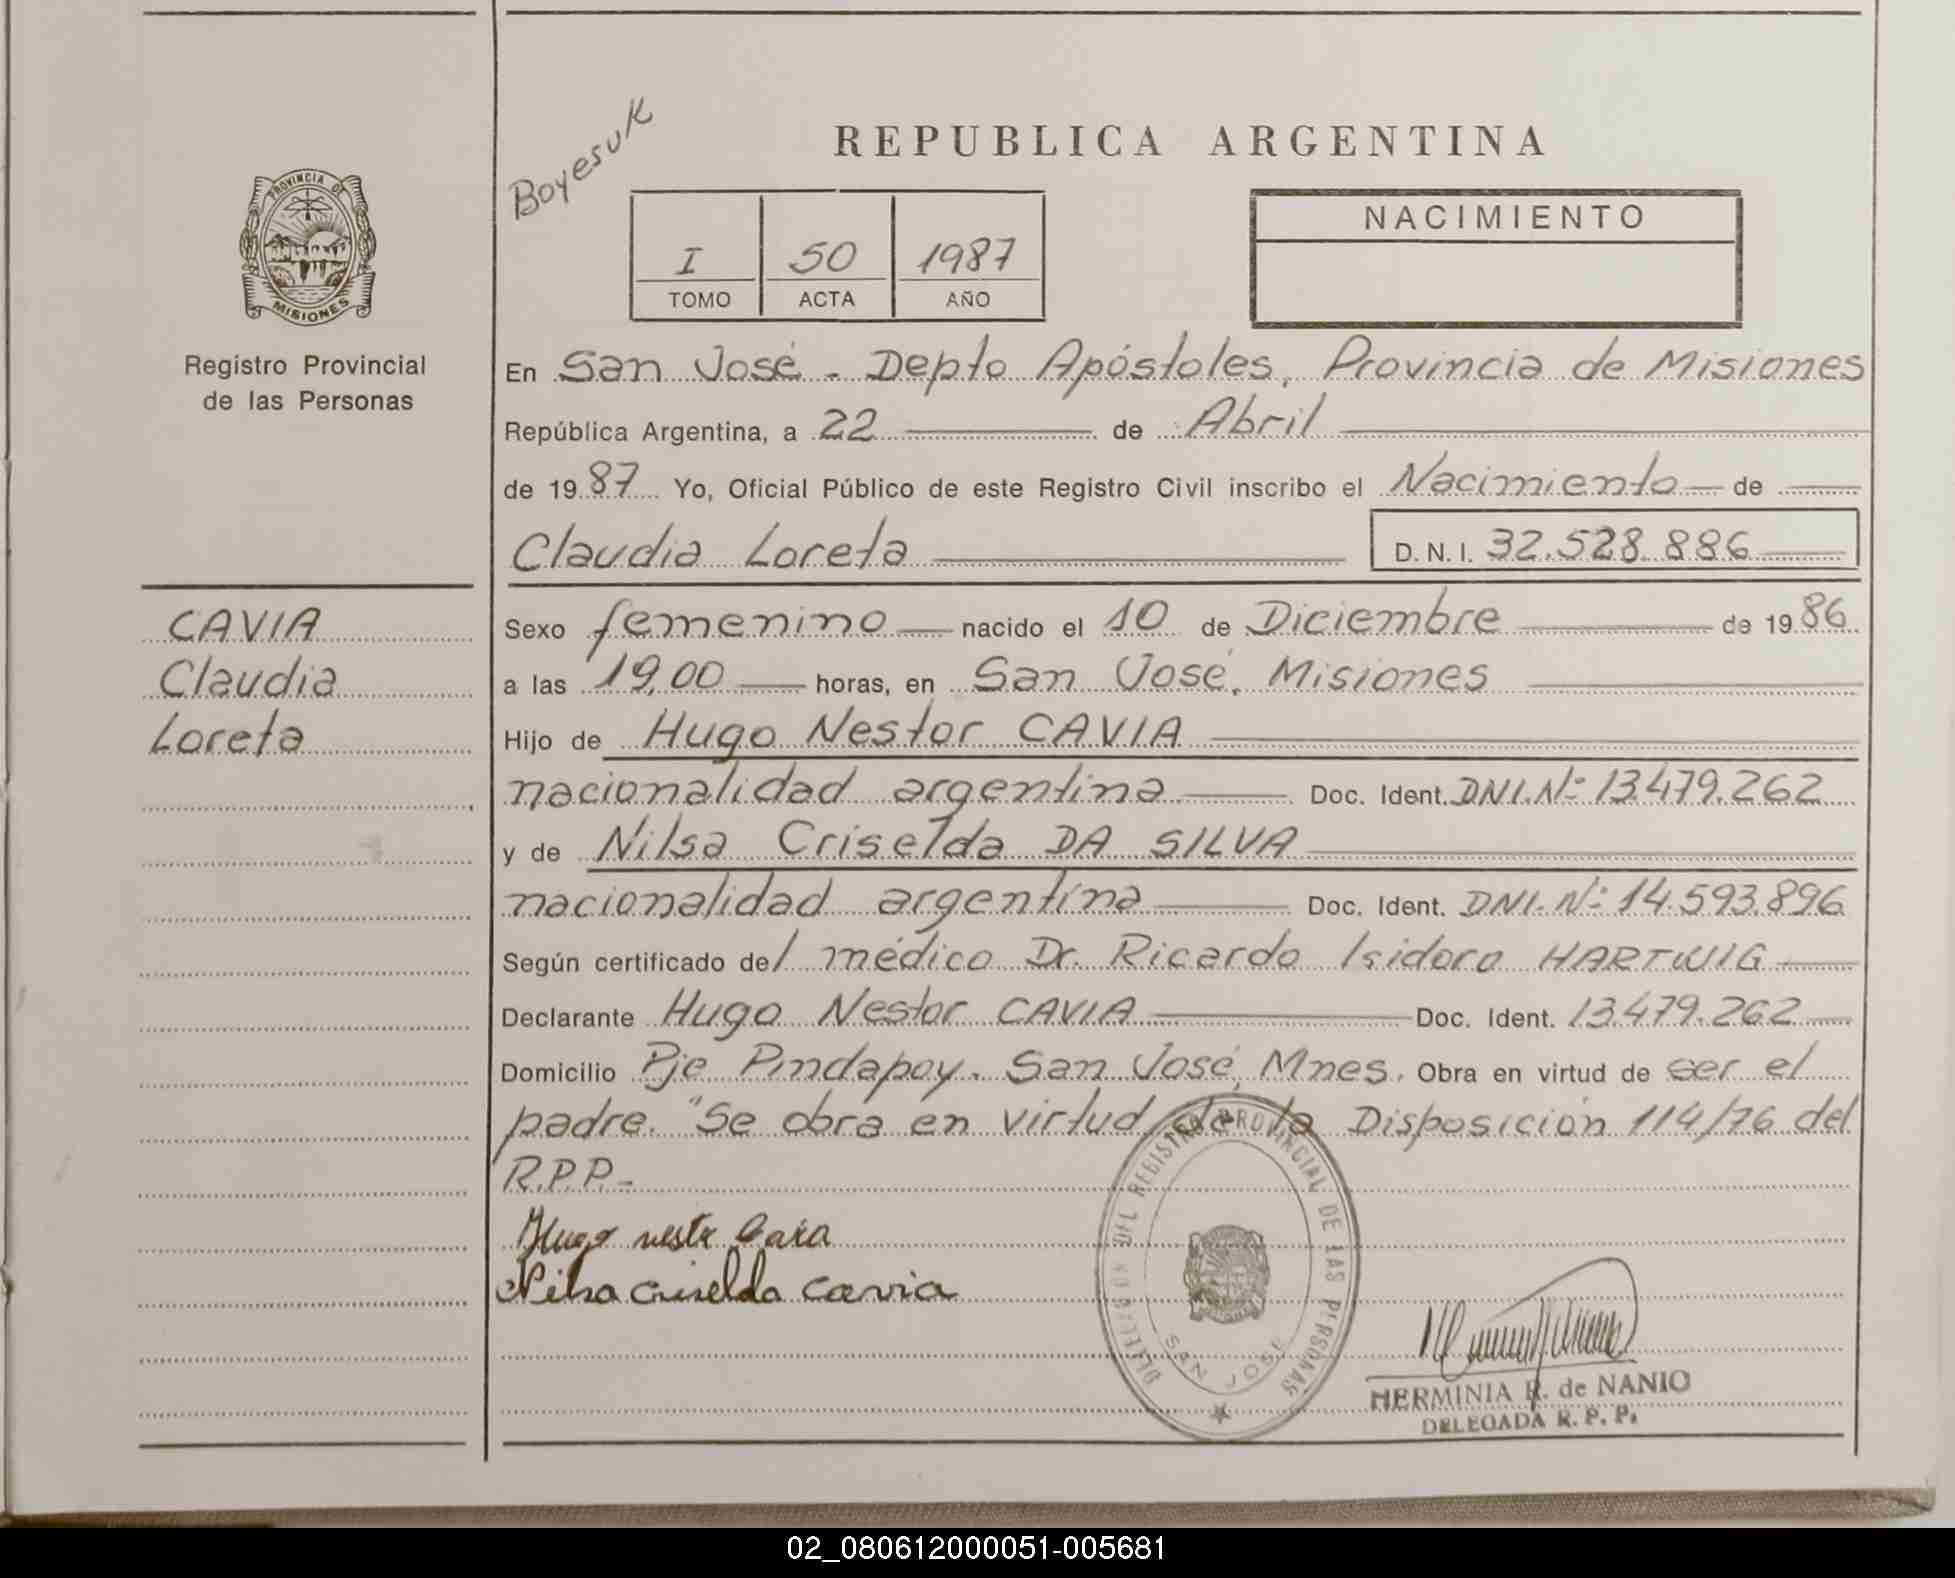 Boyesuk
REPUBLICA ARGENTINA
PROVINCIA DE
MISIONES
I 50 1987
TOMO ACTA AÑO
NACIMIENTO
Registro Provincial
de las Personas
En San José - Depto Apóstoles, Provincia de Misiones
República Argentina, a 22 de Abril
de 1987 Yo, Oficial Público de este Registro Civil inscribo el Nacimiento de
Claudia Loreta D.N.I. 32.528.886
CAVIA
Claudia
Loreta
Sexo femenino nacido el 10 de Diciembre de 1986
a las 19,00 horas, en San José, Misiones
Hijo de Hugo Nestor CAVIA
nacionalidad argentina Doc. Ident. DNI.Nº 13.479.262
y de Nilsa Criselda DA SILVA
nacionalidad argentina Doc. Ident. DNI.Nº 14.593.896
Según certificado del médico Dr. Ricardo Isidoro HARTWIG
Declarante Hugo Nestor CAVIA Doc. Ident. 13.479.262
Domicilio Pje Pindapoy. San José, Mnes. Obra en virtud de ser el
padre. "Se obra en virtud de la Disposición 114/76 del
R.P.P.-
Hugo nestr Cavia
Nilsa Criselda Cavia
DIRECCION DEL REGISTRO PROVINCIAL DE LAS PERSONAS
SAN JOSE
HERMINIA R. de NANIO
DELEGADA R. P. P.
02_080612000051-005681